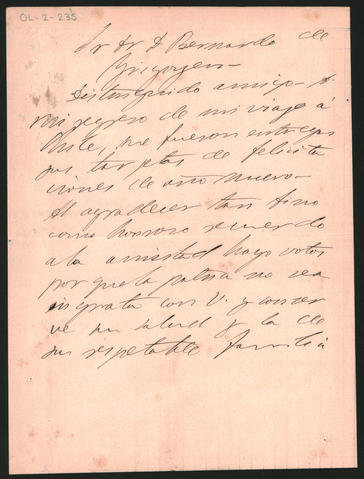 OL-2-235
Sr Dr D Bernardo de
Yrigoyen
Distinguido amigo. A
mi regreso de mi viage á
Chile, me fueron entrega
sus tarjetas de felicita
ciones de año nuevo.
Al agradecer tan fino
como honroso recuerdo
a la amistad hago votos
por que la patria no sea
ingrata con V. y conser
ve su salud y la de
su respetable familia